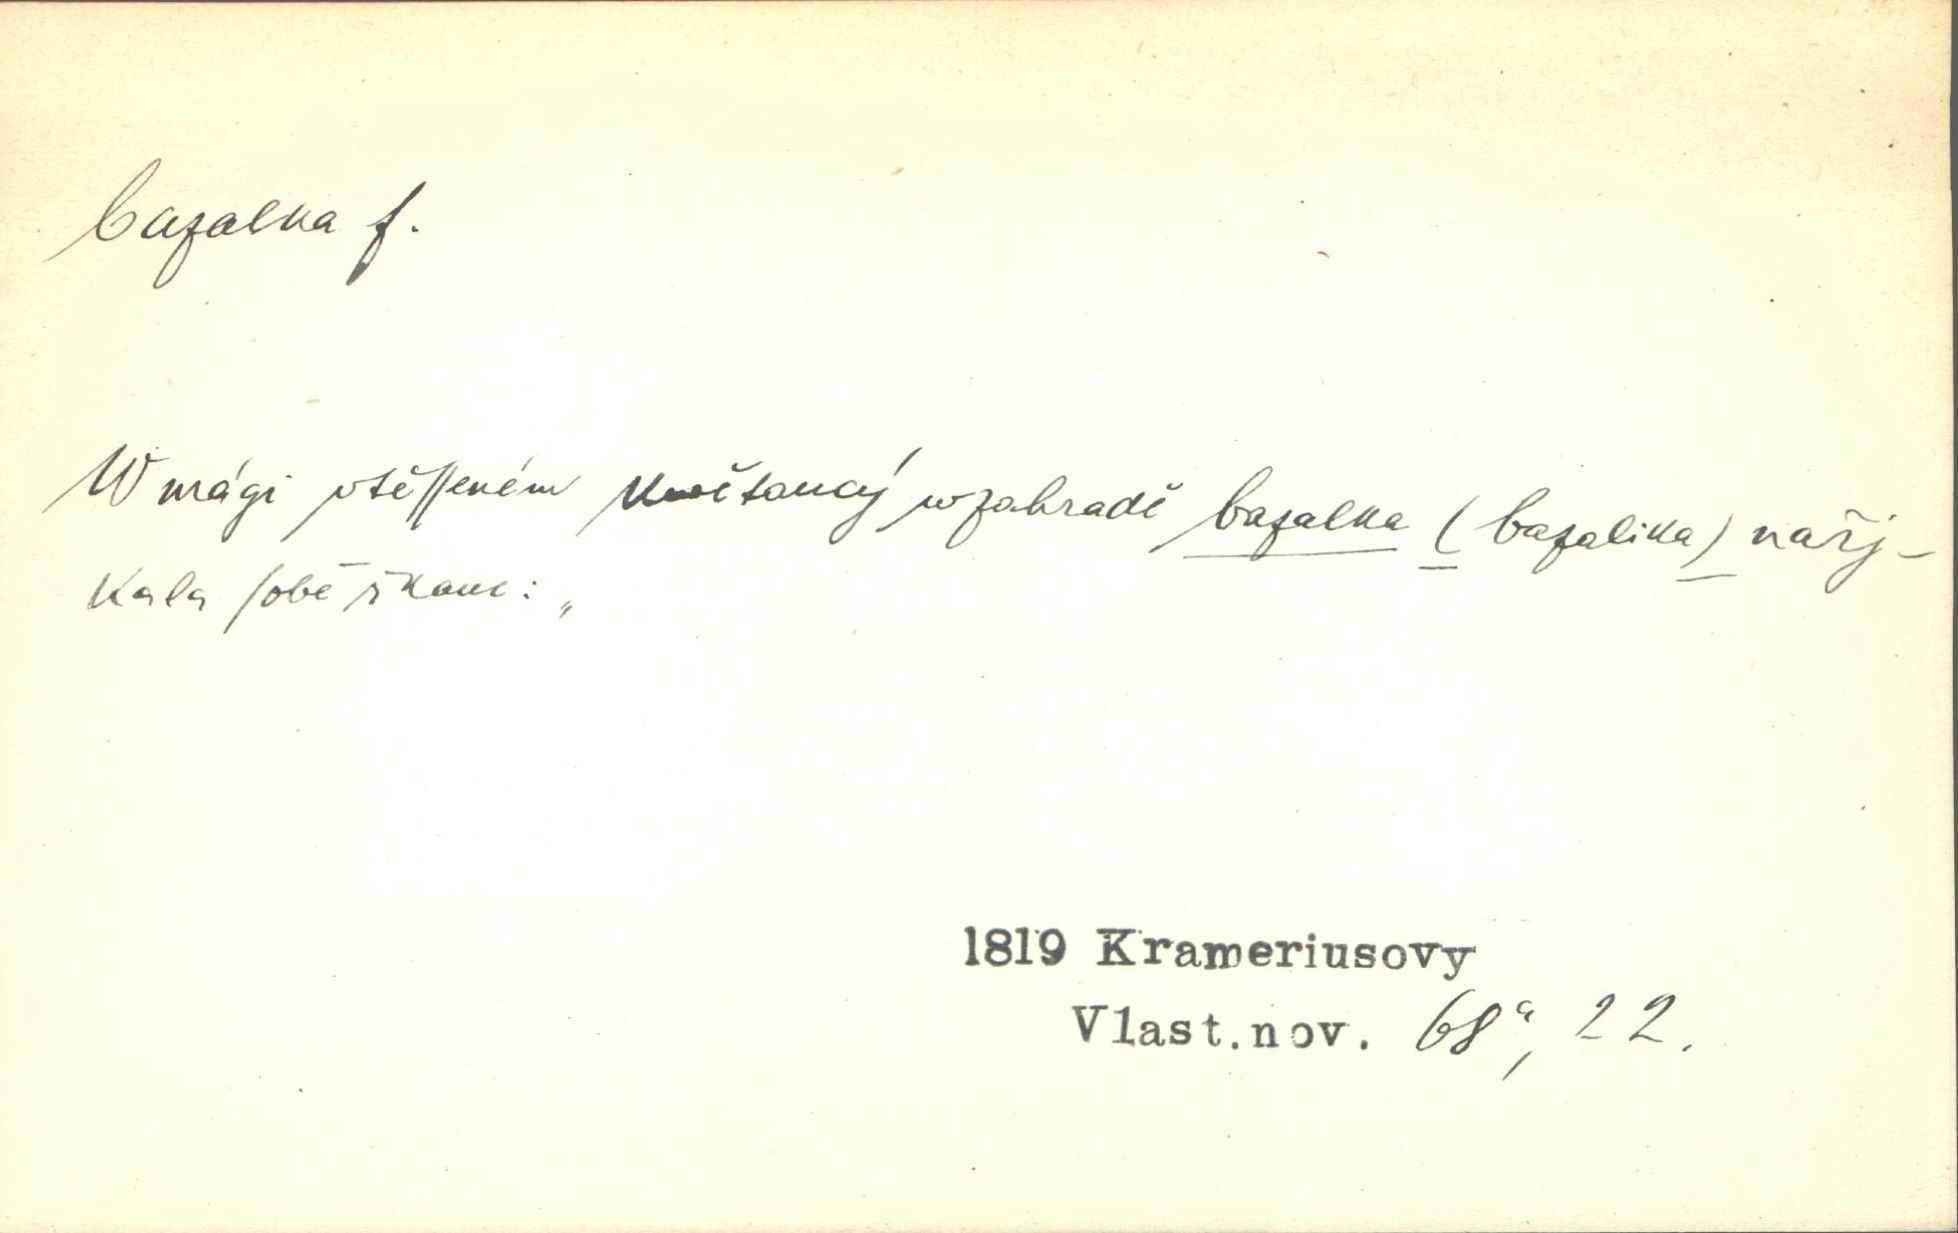 bazalka f.
W mági vtěsseném kwětaucý w zahradě bazalka (bazalika) nařj-
kala sobě řkauc: „
1819 Krameriusovy
Vlast.nov. 68a, 22.